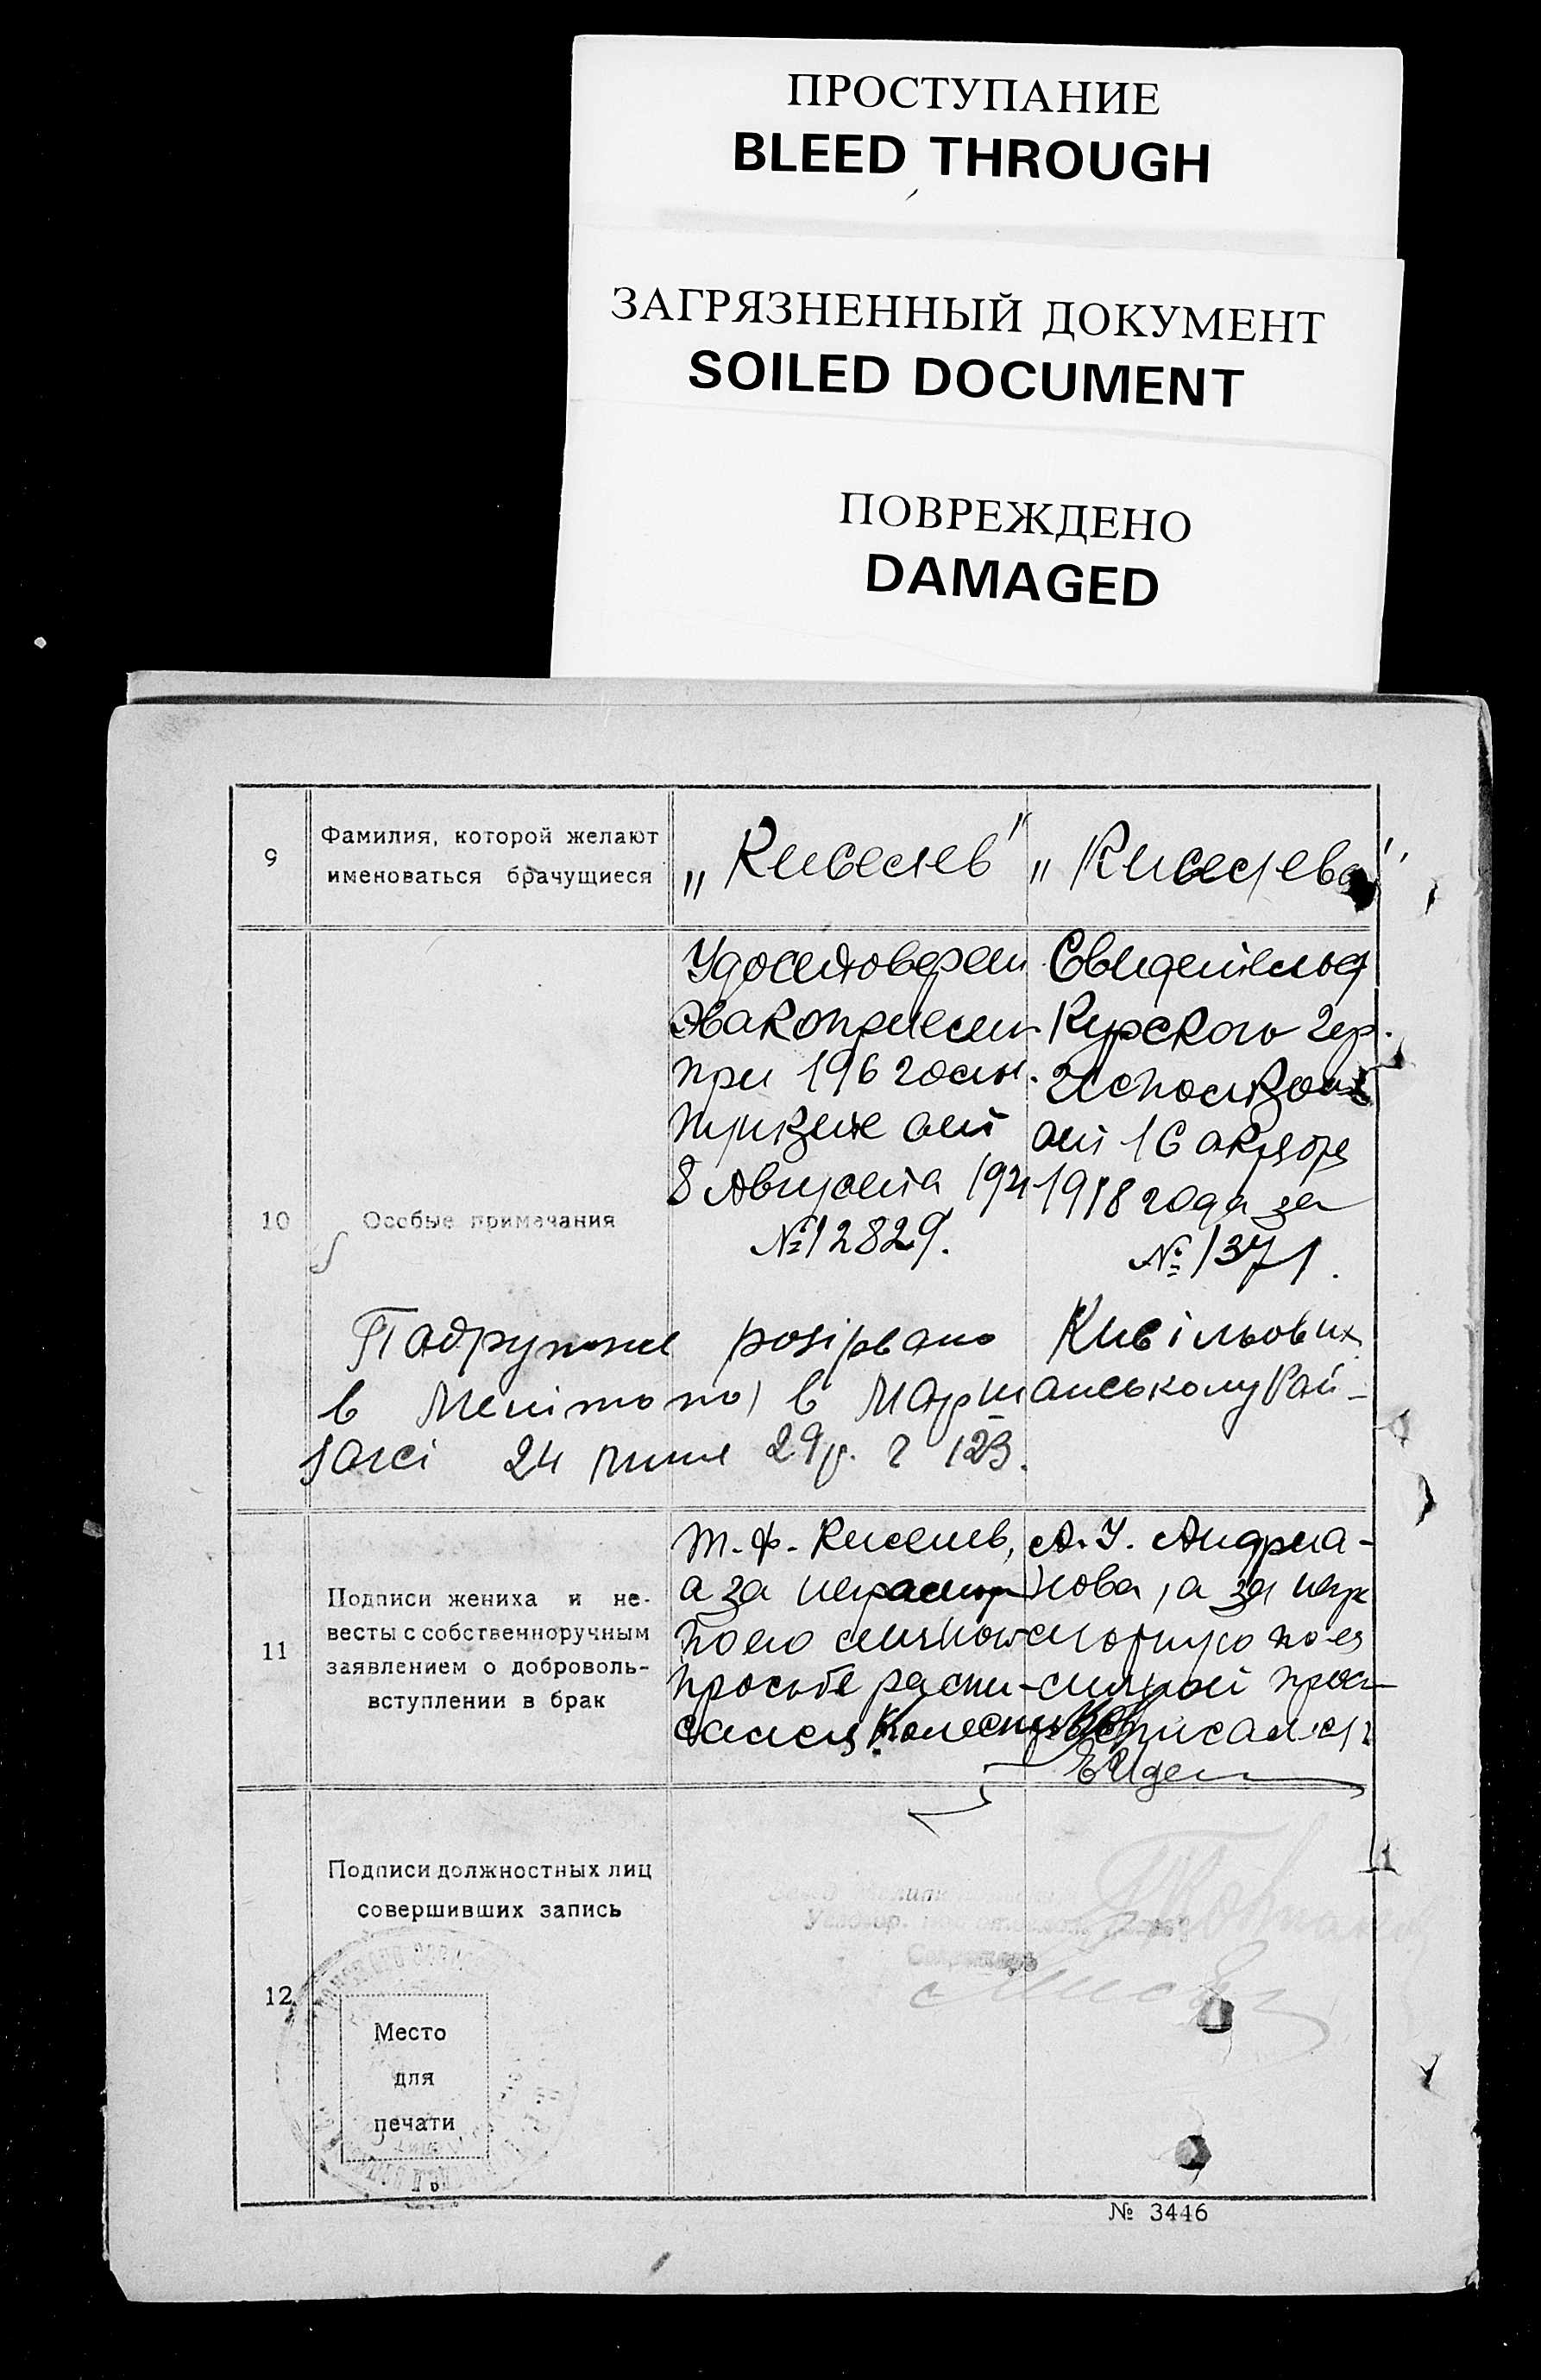 ПРОСТУПАНИЕ
BLEED THROUGH
ЗАГРЯЗНЕННЫЙ ДОКУМЕНТ
SOILED DOCUMENT
ПОВРЕЖДЕНО
DAMAGED
9
Фамилия, которой желают
именоваться брачущиеся
„Киселев"
„Киселева"
10
Особые примечания
Удостоверен
Эвакоприемн
при 196 госп.
пункте от
8 Августа 192
№ 12829.
Свидетельс
Курского гор.
Исполкома
от 16 октября
1918 года за
№ 1371.
Подружжя розірвано
в Мелітополі в
24 липня 29р. 123.
11
Подписи жениха и не-
весты с собственноручным
заявлением о доброволь-
вступлении в брак
Т. Ф. Киселев,
а за неграмот
ного личной
просьбе распи-
сался
А. У. Андриа-
нова, а за негр
мотную по ея
личной прос
расписался
12
Подписи должностных лиц
совершивших запись
Секретарь
Место
для
печати
№ 3446